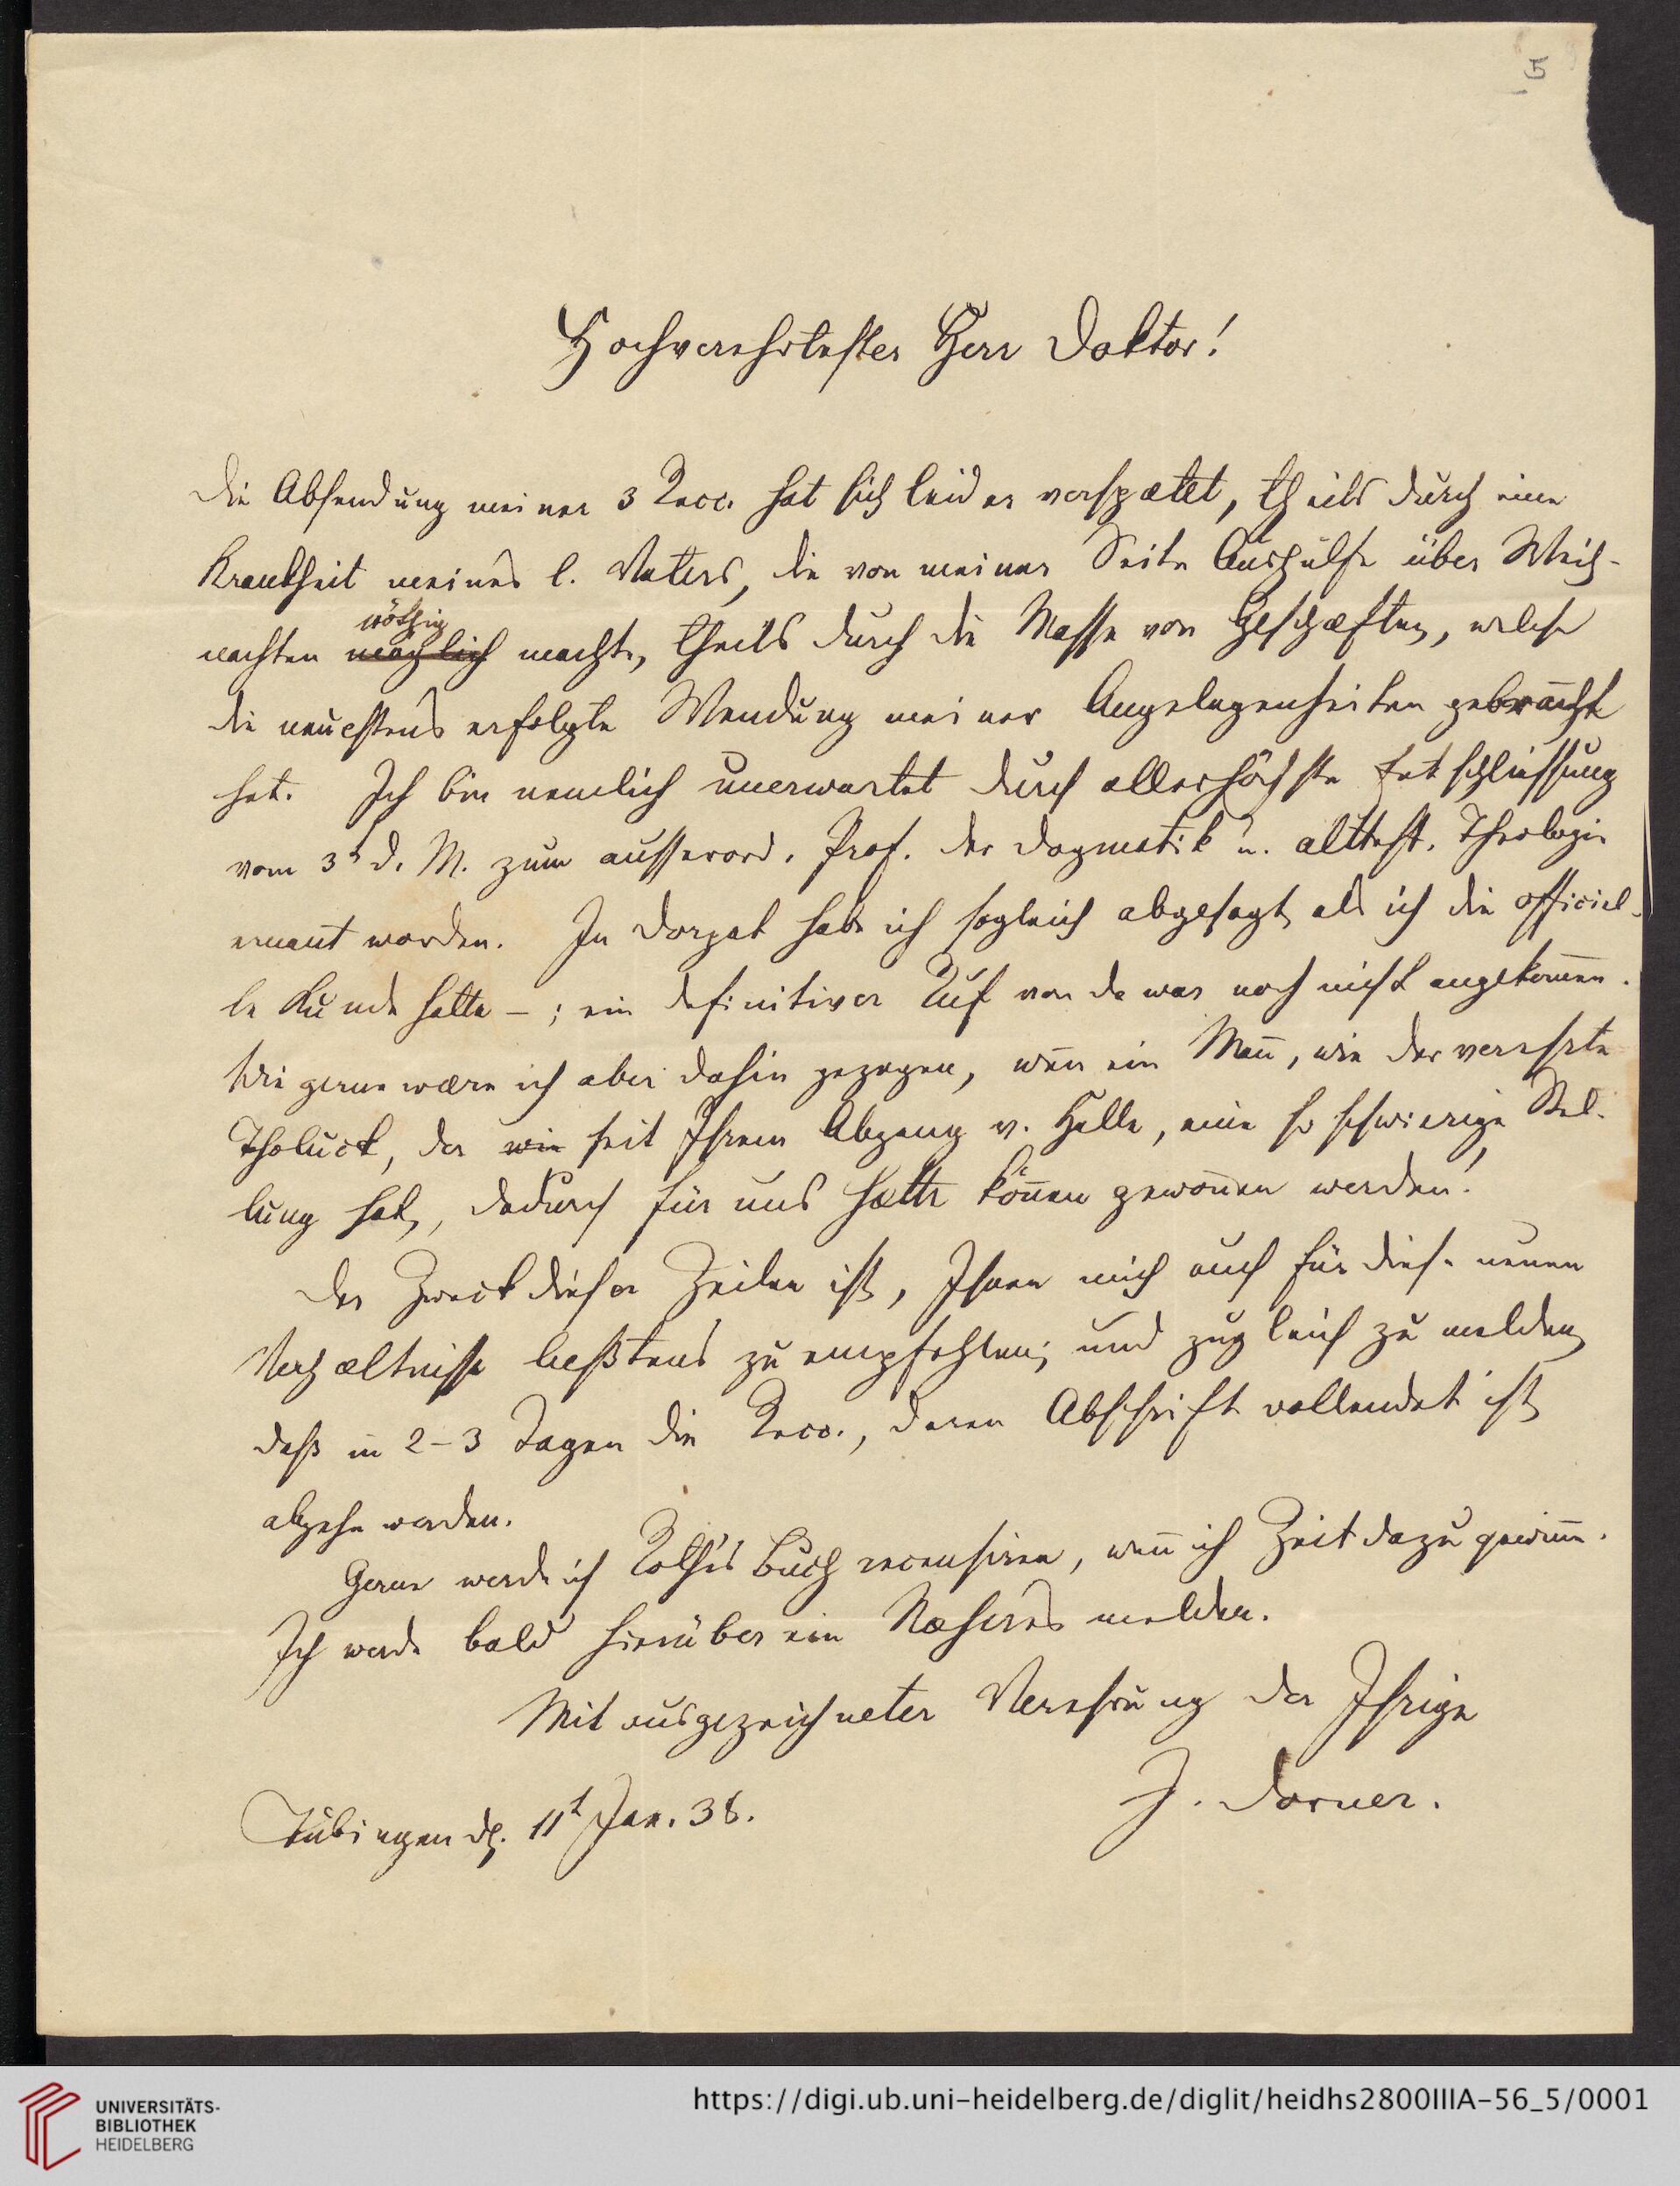 5
Hochverehrtester Herr Doktor!
Die Absendung meiner 3 Recc. hat sich leider verspætet, theils durch eine
Krankheit meines l. Vaters, die von meiner Seite Aushülfe über Weih-
nöthig
nachten möglich machte, theils durch die Masse von Geschæften, welche
die neuestens erfolgte Wendung meiner Angelegenheiten gebracht
hat. Ich bin nemlich unerwartet durch allerhöchste Entschliessung
vom 3t d. M. zum ausserord. Prof. der Dogmatik u. alttest. Theologie
ernan̄t worden. In Dorpat habe ich sogleich abgesagt, als ich die officiel-
le Kunde hatte –; ein definitiver Ruf von da war noch nicht angekom̄en.
Wie gerne wære ich aber dahin gezogen, wen̄ ein Man̄, wie der verehrte
Tholuck, der wie seit Ihrem Abgang v. Halle, eine so schwierige Stel-
lung hat, dadurch für uns hætte kön̄en gewon̄en werden!
Der Zweck dieser Zeilen ist, Ihnen mich auch für diese neuen
Verhæltnisse beßtens zu empfehlen; und zugleich zu melden,
daß in 2–3 Tagen die Recc., deren Abschrift vollendet ist,
abgehn werden.
Gerne werde ich Rothe's Buch recensiren, wen̄ ich Zeit dazu gewin̄e.
Ich werde bald hierüber ein Næheres melden.
Mit ausgezeichneter Verehrung der Ihrige
J. Dorner.
Tübingen d. 11t Jan. 38.
UNIVERSITÄTS-
BIBLIOTHEK
HEIDELBERG
https://digi.ub.uni-heidelberg.de/diglit/heidhs2800IIIA-56_5/0001